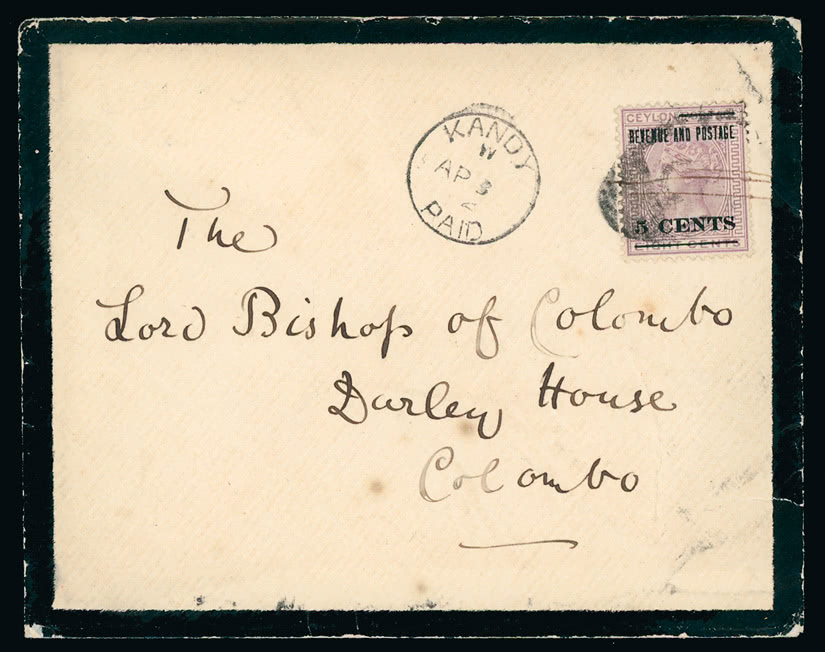 KANDY
W
AP 3
2
PAID
CEYLON
REVENUE AND POSTAGE
5 CENTS
EIGHT CENTS
The
Lord Bishop of Colombo
Darley House
Colombo